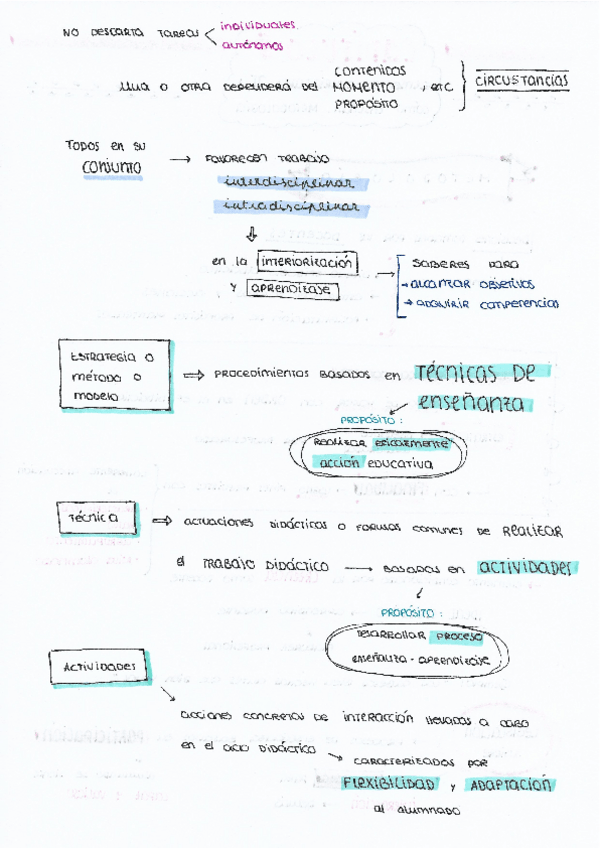 NO DESCARTA TAREAS
individuales
autónomas
UNA O OTRA DEPENDERÁ DEL
CONTENIDOS
MOMENTO
PROPÓSITO
, ETC
CIRCUSTANCIAS
TODOS EN SU
CONJUNTO → FAVORECEN TRABAJO
interdisciplinar
intradisciplinar
en la INTERIORIZACIÓN
Y APRENDIZAJE
→ SABERES PARA
→ ALCANZAR OBJETIVOS
→ ADQUIRIR COMPETENCIAS
ESTRATEGIA O
MÉTODO O
MODELO
⇒ PROCEDIMIENTOS BASADOS en TÉCNICAS DE
enseñanza
PROPÓSITO:
REALIZAR EFICAZMENTE
ACCIÓN EDUCATIVA
TÉCNICA ⇒ ACTUACIONES DIDÁCTICAS O FORMAS COMUNES DE REALIZAR
el TRABAJO DIDÁCTICO → BASADAS en ACTIVIDADES
PROPÓSITO:
DESARROLLAR PROCESO
enseñanza - APRENDIZAJE
ACTIVIDADES
ACCIONES CONCRETAS DE INTERACCIÓN llevadas a cabo
en el acto DIDÁCTICO
CARACTERIZADAS POR
FLEXIBILIDAD y ADAPTACIÓN
al alumnado